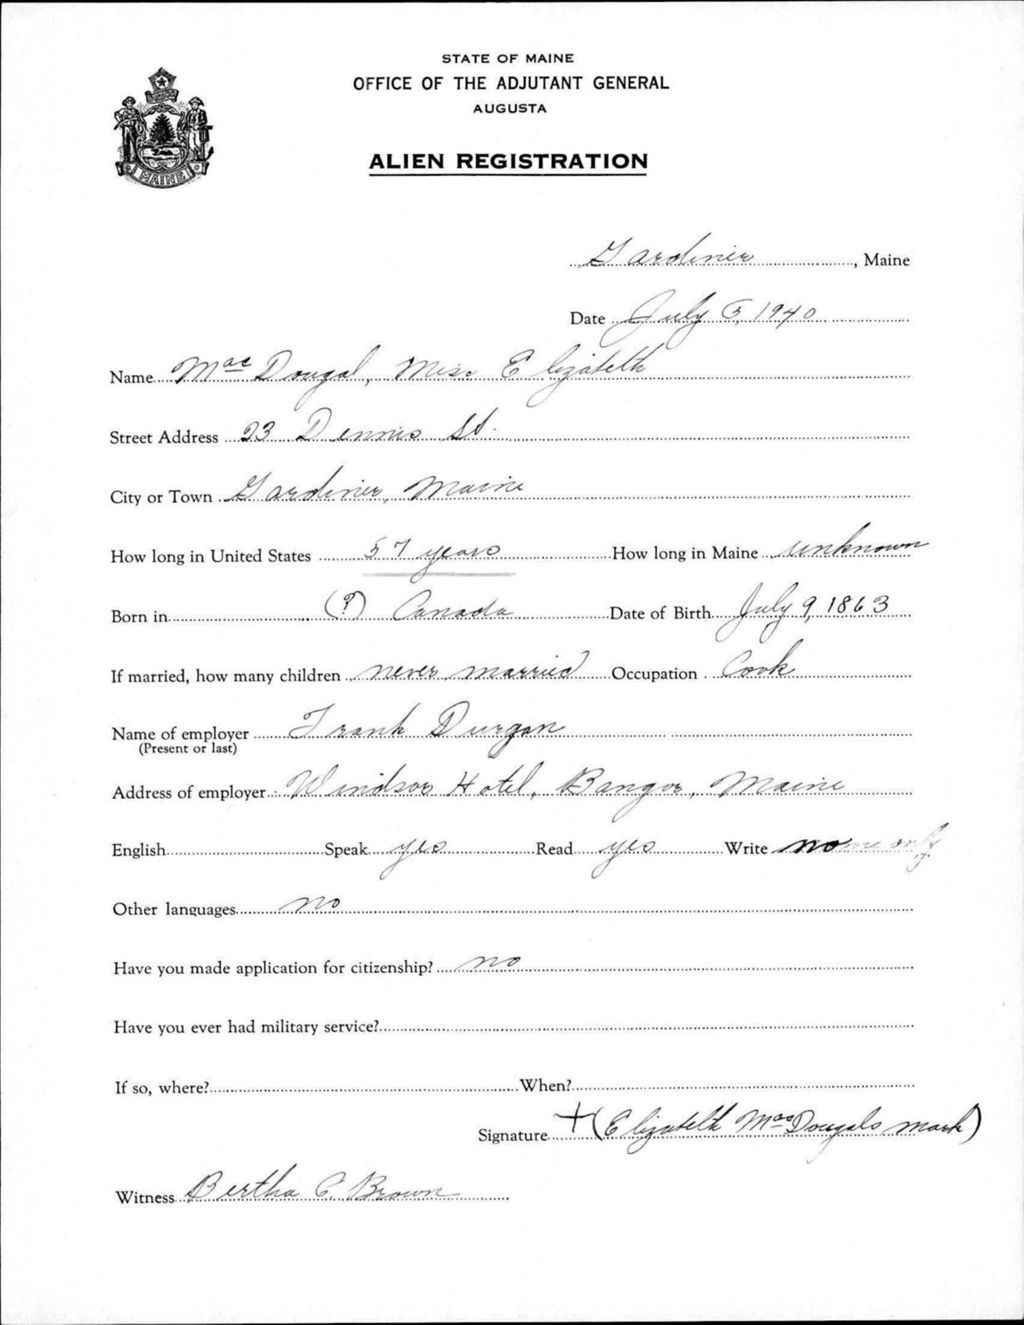 STATE OF MAINE
OFFICE OF THE ADJUTANT GENERAL
AUGUSTA
MAINE
ALIEN REGISTRATION
Gardiner, Maine
Date July 5, 1940
Name MacDougal, Miss Elizabeth
Street Address 23 Dennis St.
City or Town Gardiner, Maine
How long in United States 57 years How long in Maine unknown
Born in (?) Canada Date of Birth July 9, 1863
If married, how many children never married Occupation Cook
Name of employer Frank Durgan
(Present or last)
Address of employer Windsor Hotel, Bangor, Maine
English Speak yes Read yes Write name only
Other languages no
Have you made application for citizenship? no
Have you ever had military service?
If so, where? When?
Signature + (Elizabeth MacDougals mark)
Witness Bertha C. Brown